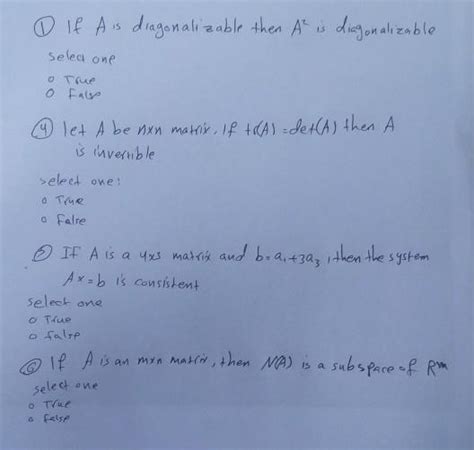 ① If A is diagonalizable then A² is diagonalizable
select one
o True
o False
④ let A be nxn matrix. If tr(A) = det(A) then A
is invertible
select one:
o True
o False
⑤ If A is a 4x3 matrix and b = a₁+3a₃, then the system
Ax=b is consistent
select one
o True
o false
⑥ If A is an mxn matrix, then N(A) is a subspace of Rᵐ
select one
o True
o false